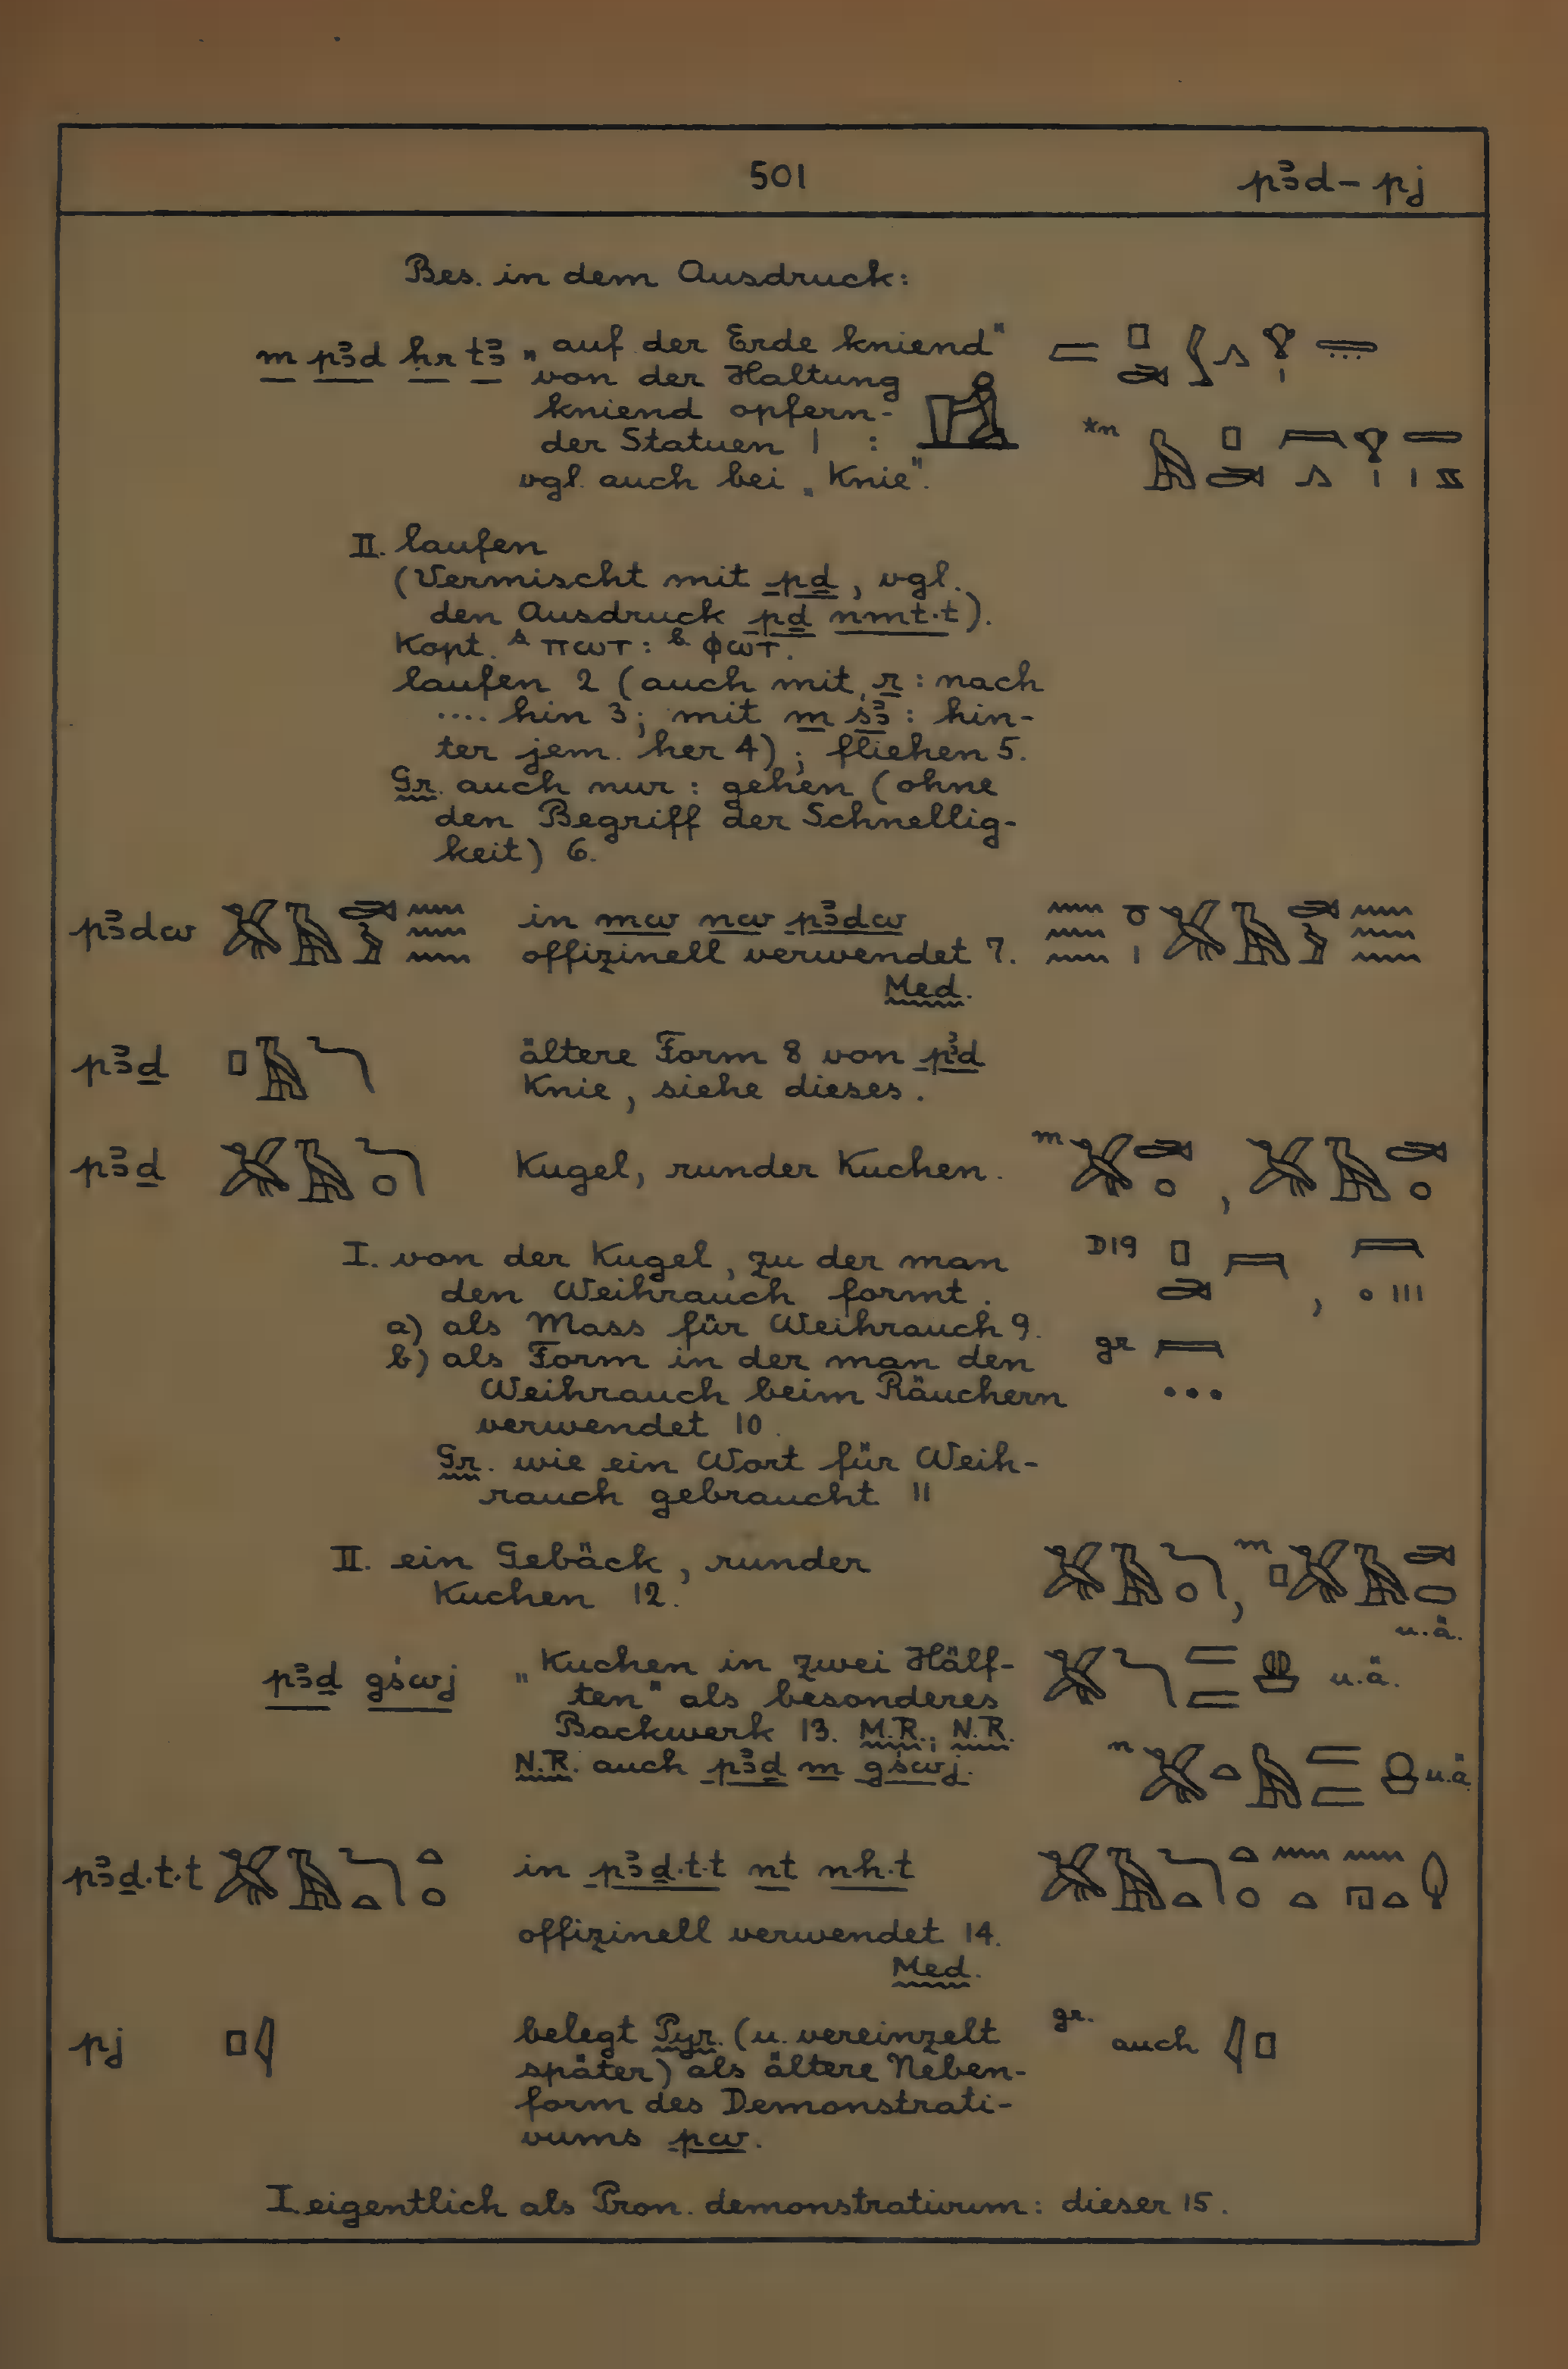 501
pꜣd – pj
Bes. in dem Ausdruck:
m pꜣd ḥr tꜣ „auf der Erde kniend"
von der Haltung
kniend opfern-
der Statuen 1 :
*n
vgl. auch bei „Knie".
II. laufen
(Vermischt mit pḏ, vgl.
den Ausdruck pḏ nmt·t).
Kopt. S. ⲡⲱⲧ : B. ⲫⲱⲧ.
laufen 2 (auch mit r : nach
.... hin 3; mit m śꜣ : hin-
ter jem. her 4); fliehen 5.
Gr. auch nur : gehen (ohne
den Begriff der Schnellig-
keit) 6.
pꜣdw 𓅮𓄿𓆛𓈗 in mw nw pꜣdw
offizinell verwendet 7.
Med.
pꜣḏ 𓊪𓄿𓆓 ältere Form 8 von pꜣd
Knie, siehe dieses.
pꜣḏ 𓅮𓄿𓆓 Kugel, runder Kuchen. m
I. von der Kugel, zu der man
den Weihrauch formt.
D19
a) als Mass für Weihrauch 9.
b) als Form in der man den
gr
Weihrauch beim Räuchern
verwendet 10.
Gr. wie ein Wort für Weih-
rauch gebraucht 11
II. ein Gebäck, runder
Kuchen 12.
m
u.ä.
pꜣḏ gśwj „Kuchen in zwei Hälf- u.ä.
ten" als besonderes
Backwerk 13. M.R.; N.R.
N.R. auch pꜣḏ m gśwj. n u.ä.
pꜣḏ·t·t in pꜣḏ·t·t nt nh·t
offizinell verwendet 14.
Med.
pj 𓊪𓇋 belegt Pyr. (u. vereinzelt gr. auch 𓇋𓊪
später) als ältere Neben-
form des Demonstrati-
vums pw.
I. eigentlich als Pron. demonstrativum: dieser 15.